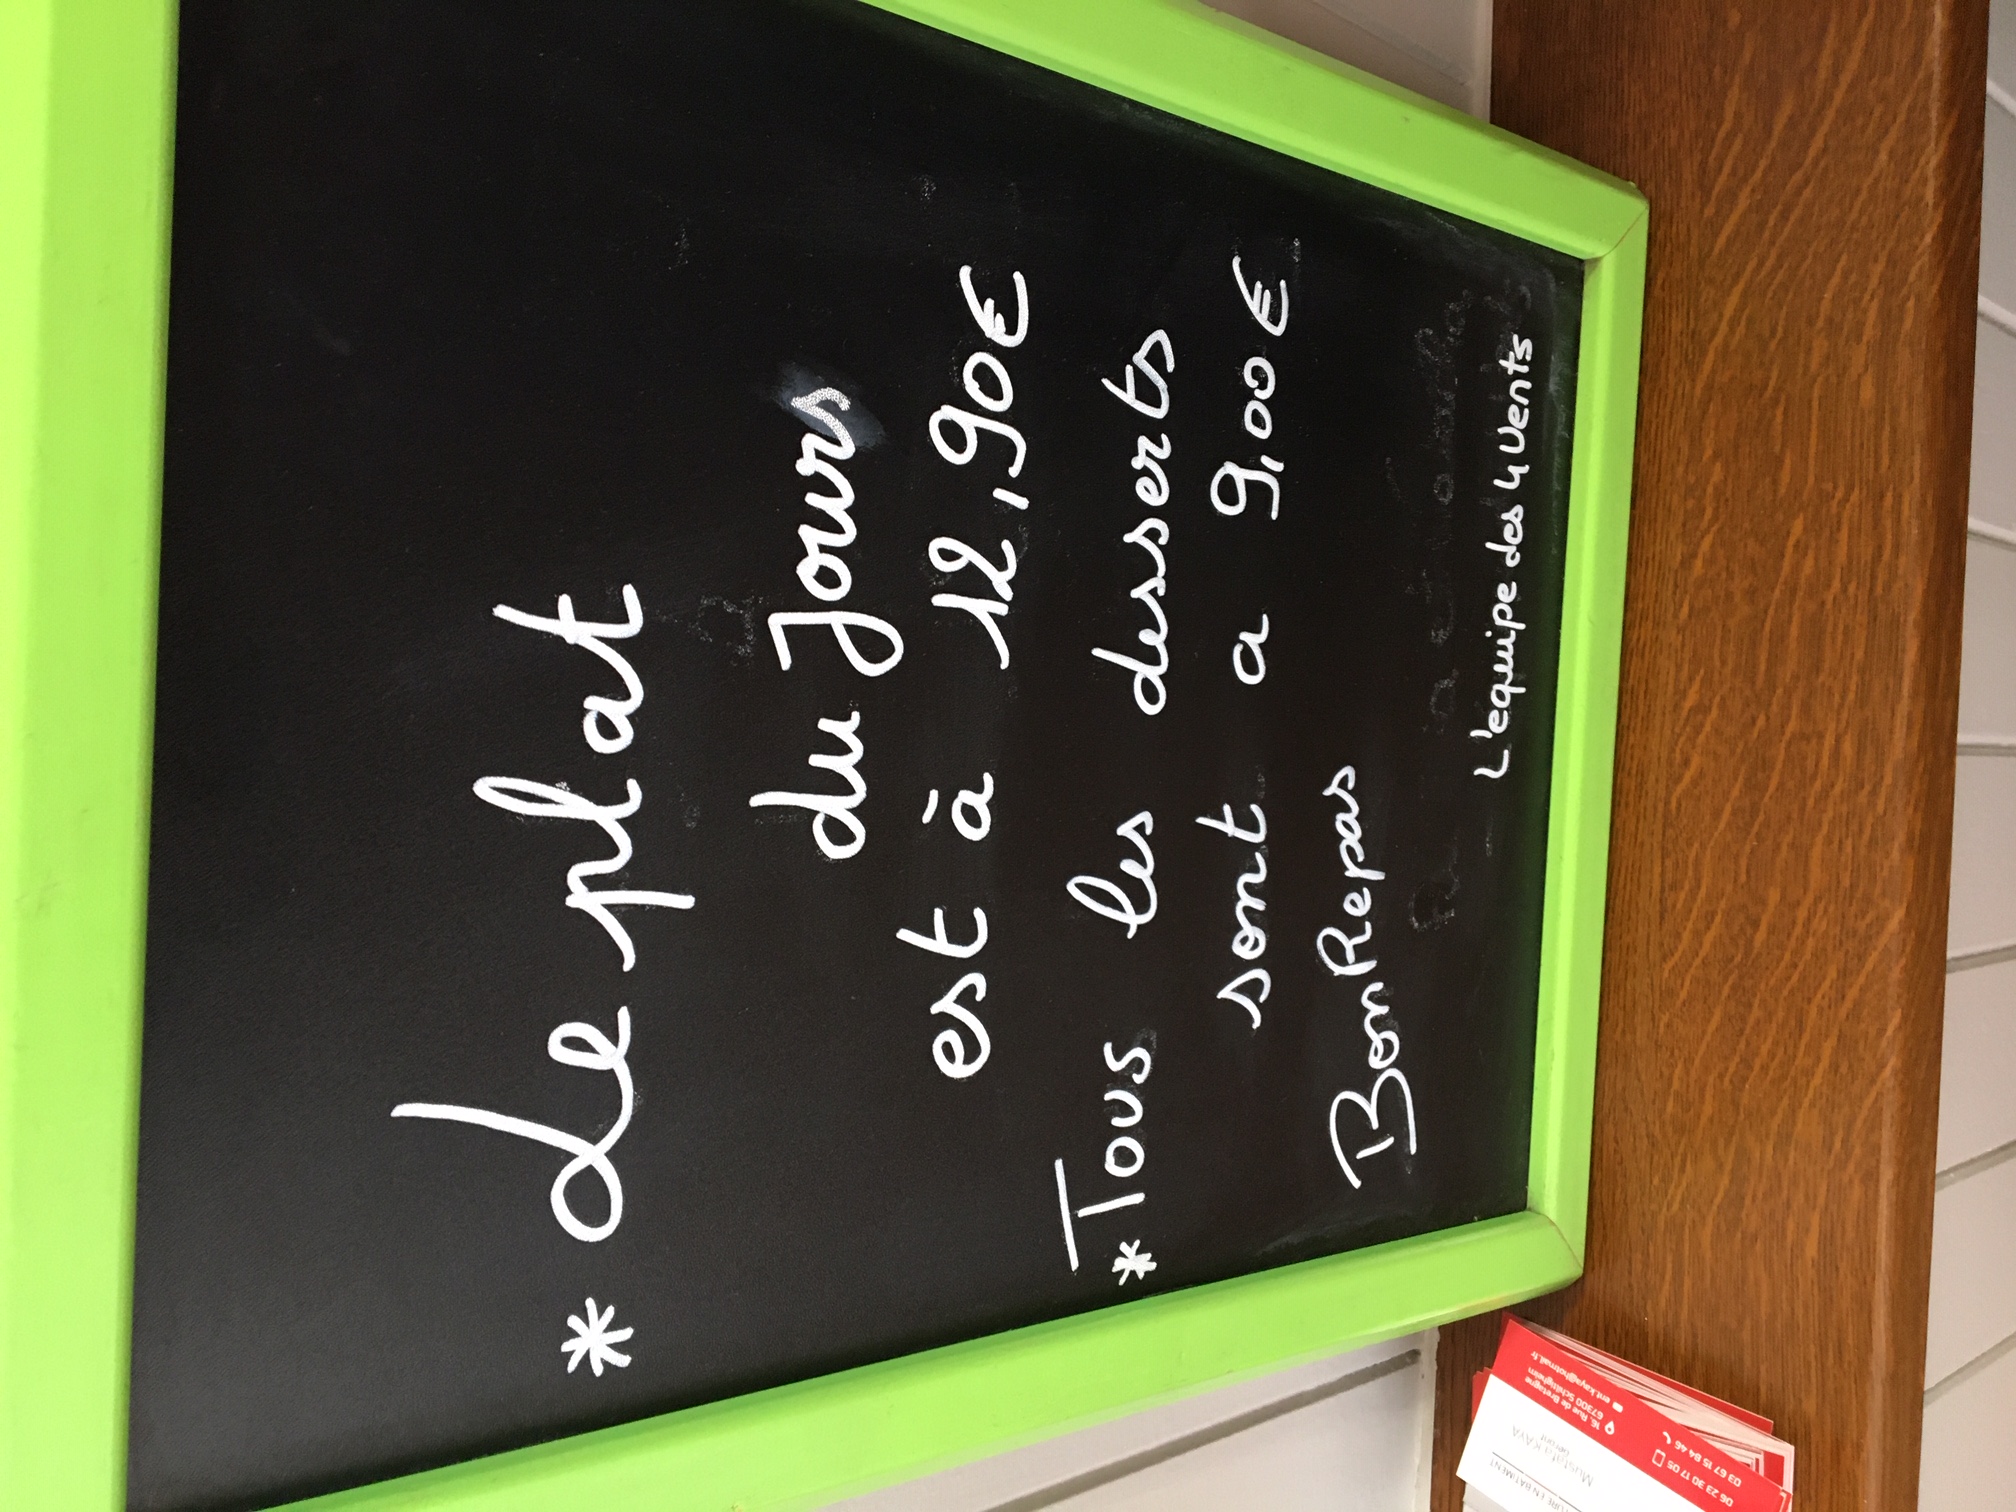 * Le plat
du Jours
est à 12,90€
* Tous les desserts
sont a 9,00€
Bon Repas
L'equipe des 4 Vents
Mustafa KAYA
Gérant
16, Rue de Bretagne
67300 Schiltigheim
ent.kaya@hotmail.fr
06 23 30 17 05
03 67 15 84 46